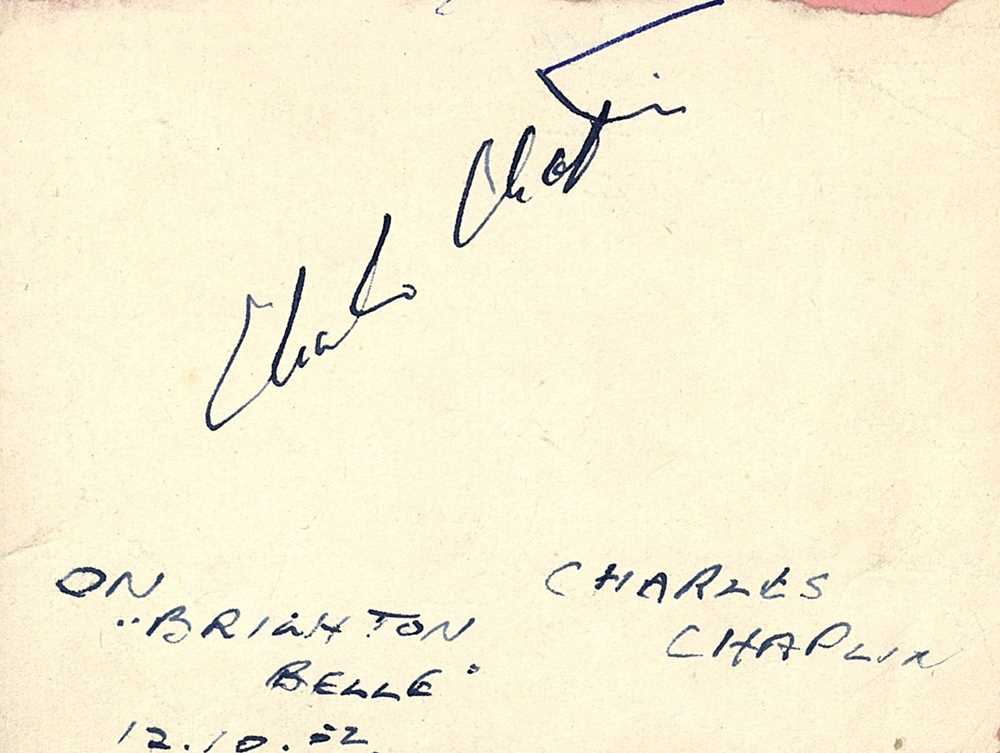 Charles Chaplin
ON
"BRIGHTON
BELLE"
12.10.52
CHARLES
CHAPLIN